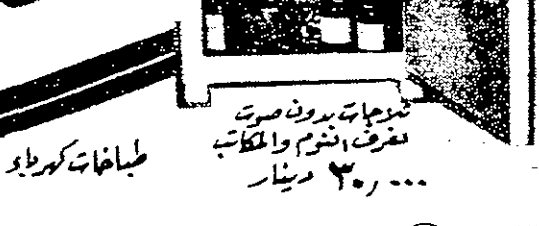 ثلاجات بدون صوت
لغرف النوم والمكاتب
٣٠,٠٠٠ دينار
طباخات كهرباء